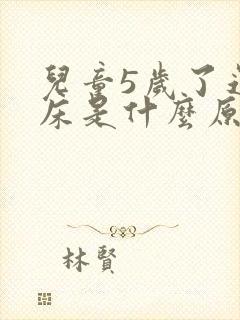 兒童5歲了
床是什麼原
林賢